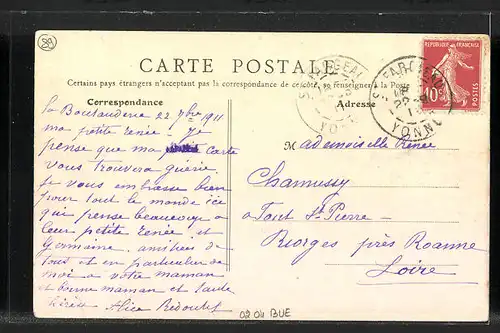 CARTE POSTALE
Certains pays étrangers n'acceptent pas la correspondance de ce côté, se renseigner à la Poste
Correspondance
Adresse
RÉPUBLIQUE FRANÇAISE
10c
POSTES
ST FARGEAU
YONNE
La 22 7bre 1911
ma petite Renée. Je
pense que ma carte
vous trouvera guérie.
Je vous embrasse bien
pour tout le monde ici
qui pense beaucoup a
leur petite Renée et
Germaine, amitiées de
tous et en particulier de
moi a votre maman
et bonne maman et tante
Alice Redoutet
Mademoiselle Renée
Chamussy
a Pont St Pierre
Riorges près Roanne
Loire
02 04 BUE